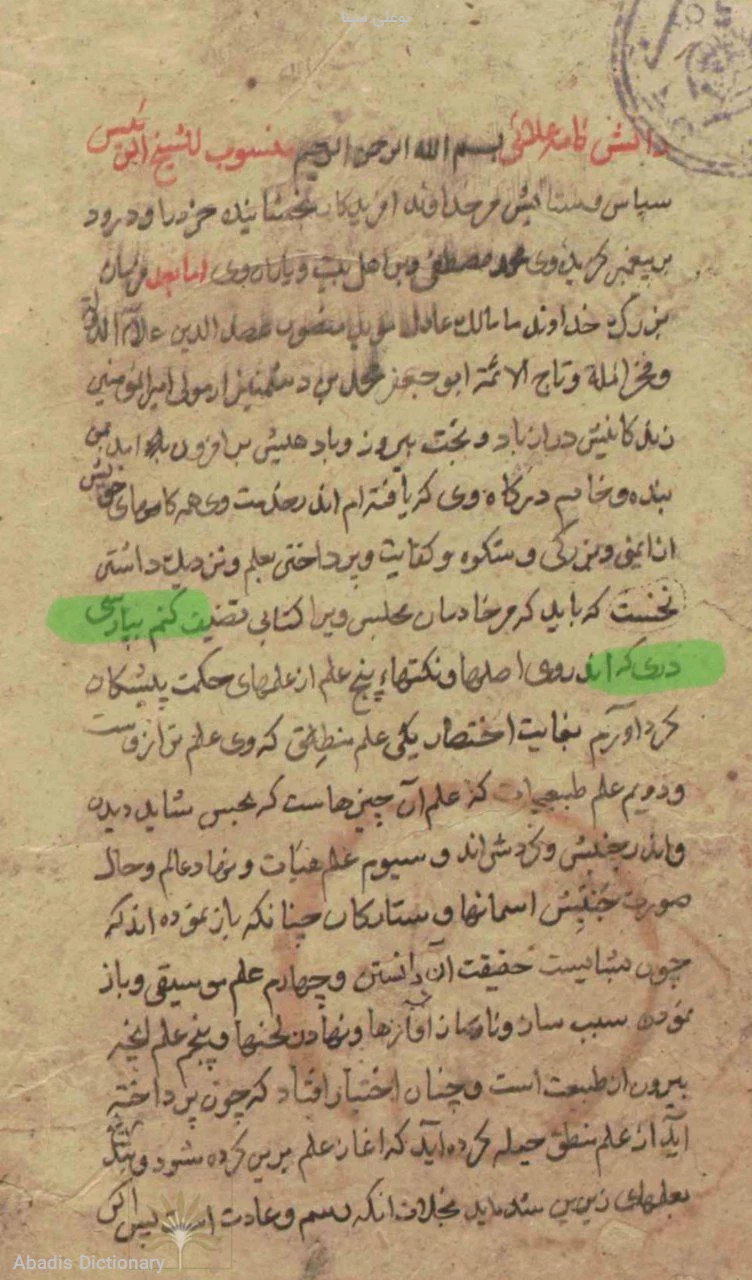 بوعلی سینا
دانش نامه علائی بسم الله الرحمن الرحیم منسوب للشیخ الرئیس
سپاس و ستایش مر خداوند آفریدگار بخشاینده خرد را و درود
بر پیغمبر گزیده وی محمد مصطفی و بر اهل بیت و یاران وی اما بعد فرمان
بزرگ خداوند ما ملک عادل مؤید منصور عضد الدین علاء الدولة
و فخر الملة و تاج الائمة ابو جعفر محمد بن دشمنزیار مولی امیر المؤمنین
زندکانیش دراز باد و بخت پیروز و پادهلیش بر افزون باد آمد بمن
بنده و خادم درکاه وی که یافته ام اندر خدمت وی همه کامهای خویش
از ایمنی و بزرکی و شکوه و کفایت و پرداختن بعلم و نزدیک داشتن
نخست که باید که مر خادمان مجلس ویرا کتابی تصنیف کنم بپارسی
دری که اندروی اصلها و نکتهاء پنج علم از علمهای حکمت پیشینکان
کرد آورم بغایت اختصار یکی علم منطق که وی علم ترازوست
و دویم علم طبیعیات که علم آن چیزهاست که بحس شاید دید
و اندر جنبش و کردش اند و سیوم علم هیأت و نهاد عالم و حال
صورت جنبش اسمانها و ستارکان چنانکه باز نموده اند که
چون شایست حقیقت آن دانستن و چهارم علم موسیقی و باز
نمودن سبب ساز و ناساز آوازها و نهادن لحنها و پنجم علم آنچه
بیرون از طبیعت است و چنان اختیار افتاد که چون پرداخته
آید از علم منطق حیله کرده آید که اغاز علم برین کرده شود و بتدریج
بعلمهای زیرین شده آید بخلاف انکه رسم و عادت است پس اکر
Abadis Dictionary